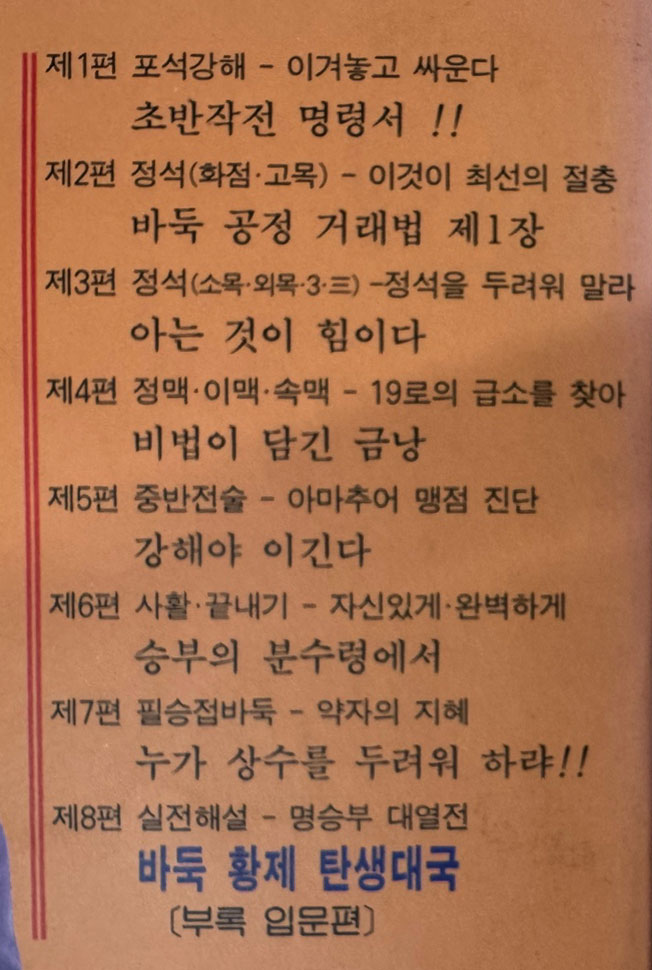 제1편 포석강해 - 이겨놓고 싸운다
초반작전 명령서 !!
제2편 정석(화점·고목) - 이것이 최선의 절충
바둑 공정 거래법 제1장
제3편 정석(소목·외목·3·三) -정석을 두려워 말라
아는 것이 힘이다
제4편 정맥·이맥·속맥 - 19로의 급소를 찾아
비법이 담긴 금낭
제5편 중반전술 - 아마추어 맹점 진단
강해야 이긴다
제6편 사활·끝내기 - 자신있게·완벽하게
승부의 분수령에서
제7편 필승접바둑 - 약자의 지혜
누가 상수를 두려워 하랴!!
제8편 실전해설 - 명승부 대열전
바둑 황제 탄생대국
〔부록 입문편〕